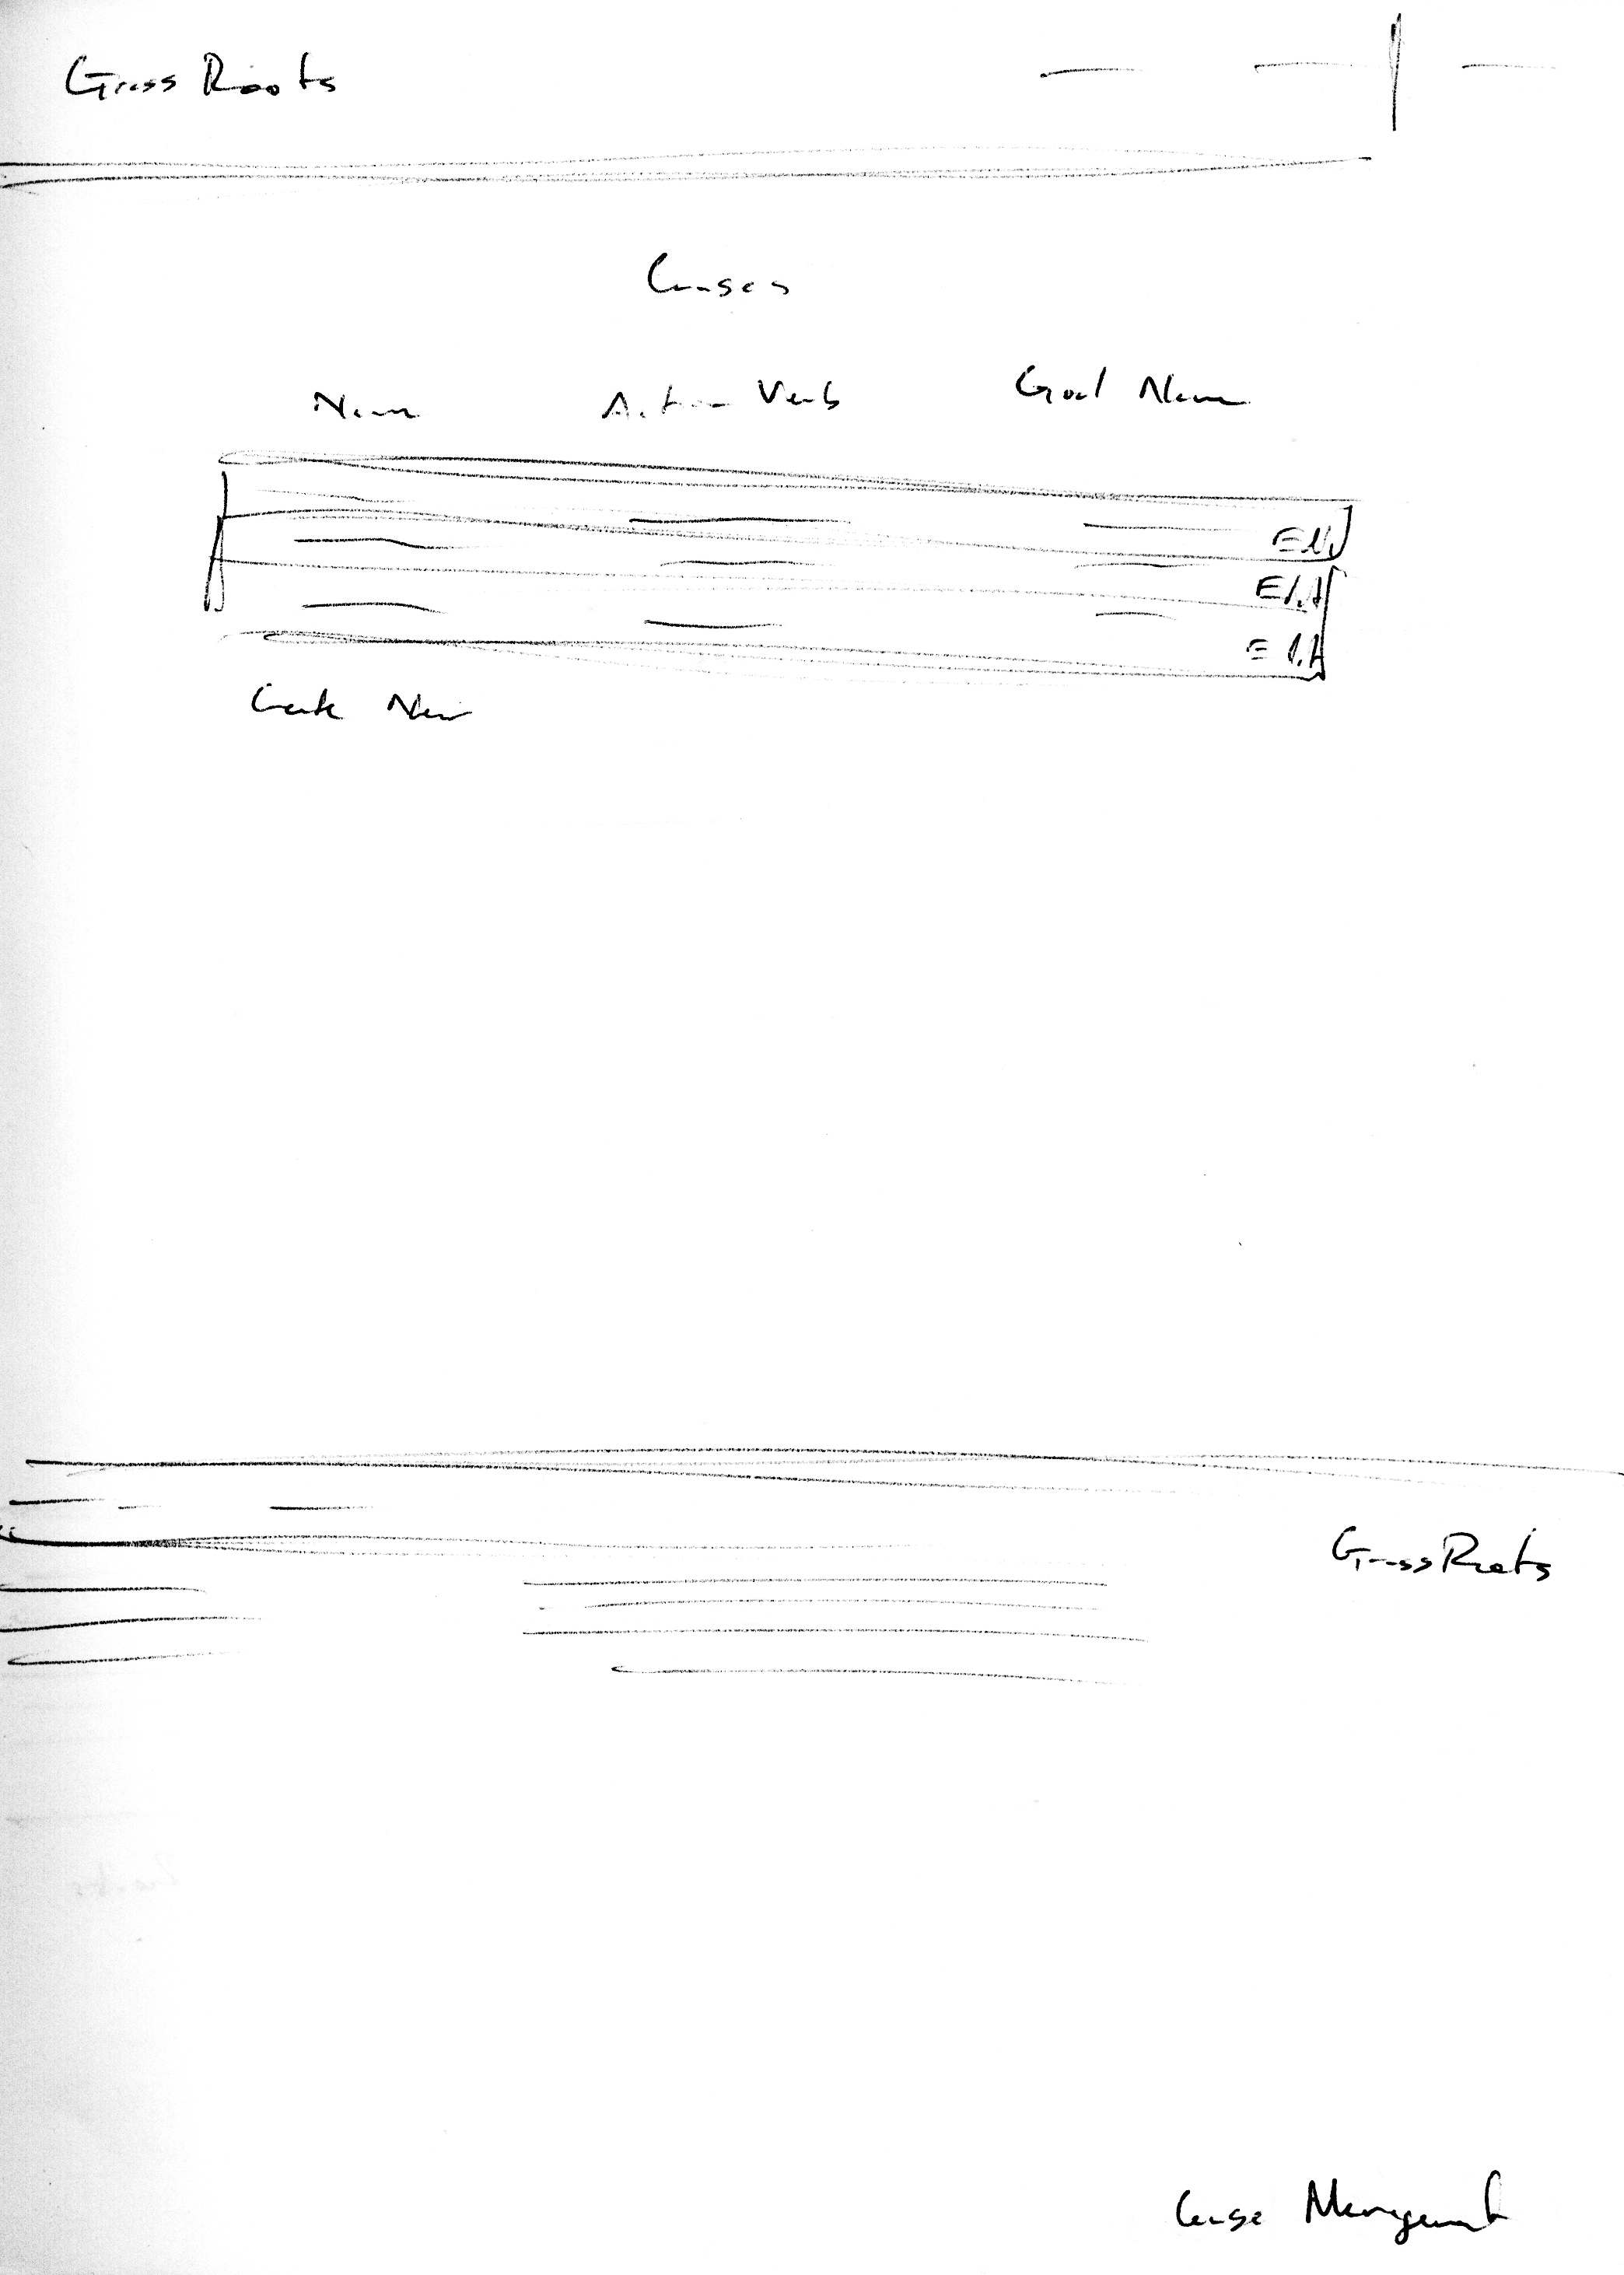 Grass Roots
Causes
Name Action Verb Goal Name
Edit
Edit
Edit
Create New
GrassRoots
Cause Management